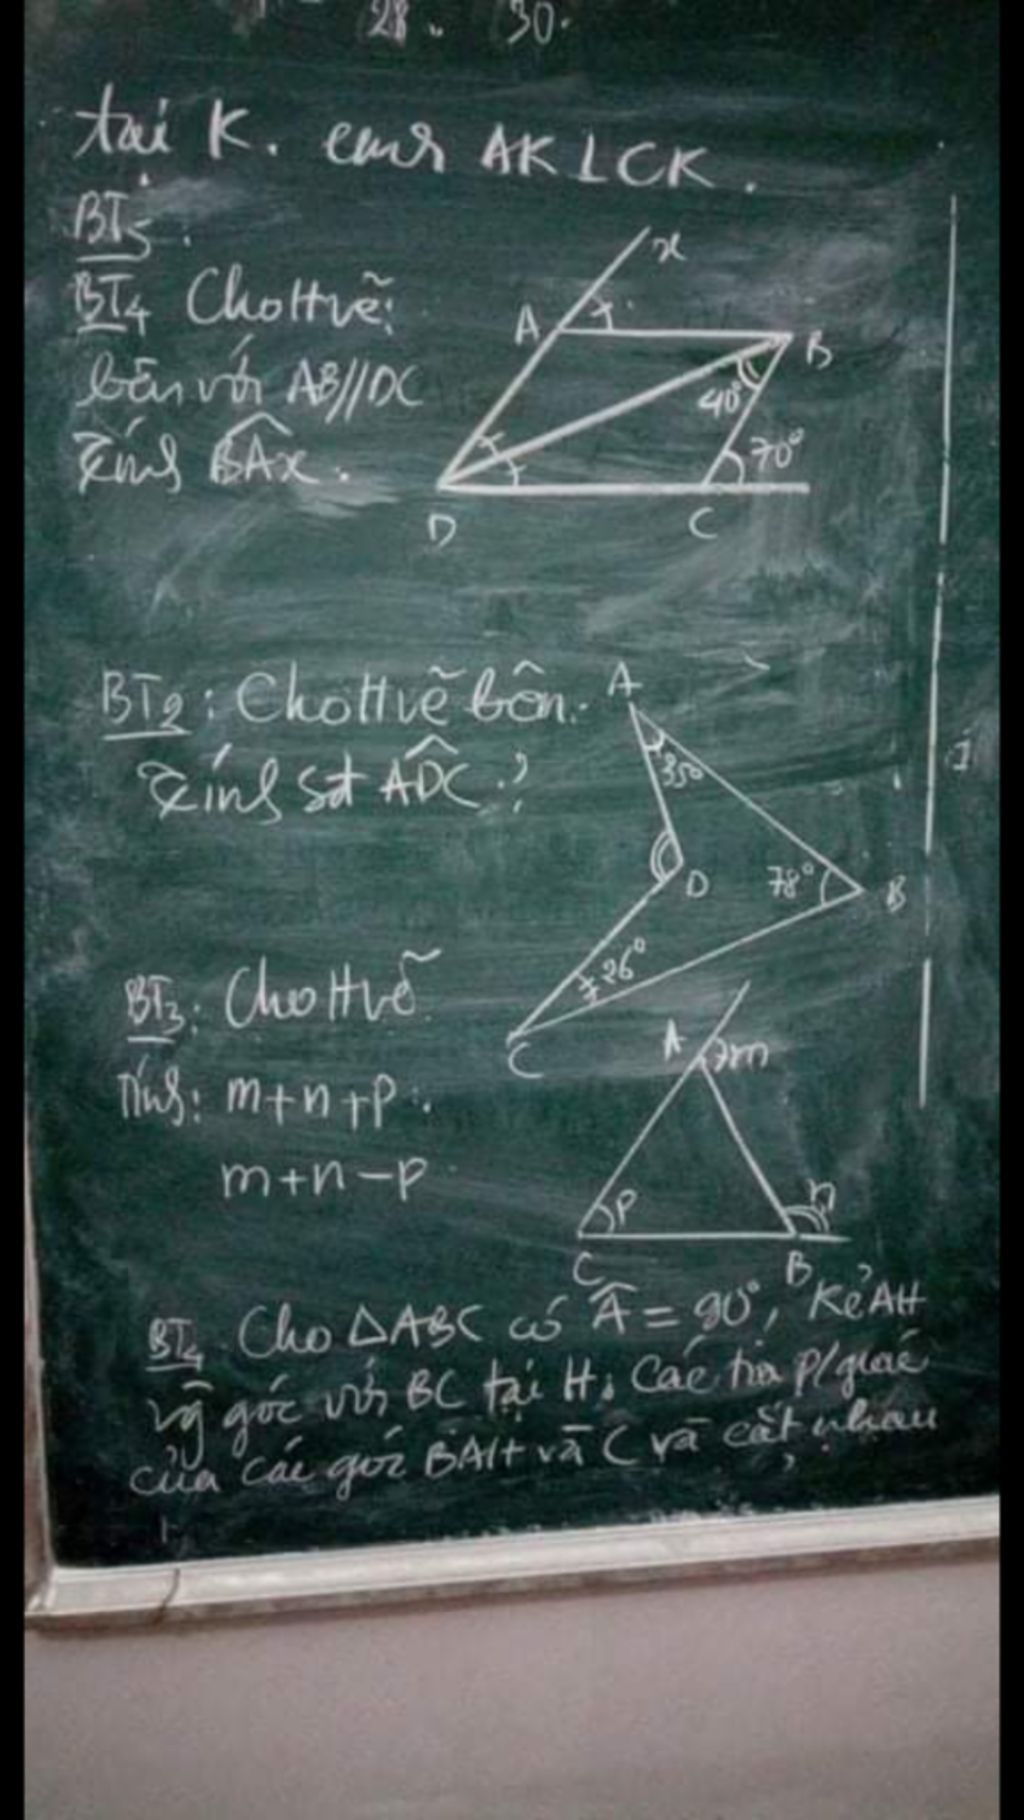 28. 30.
tại K. cmr AK⊥CK.
BT5.
BT4 Cho Hvẽ:
bên với AB//DC
Tính BÂx.
x
A
B
40°
70°
D
C
BT2: Cho Hvẽ bên.
Tính sđ ADC?
A
35°
D
78°
B
26°
C
BT3: Cho Hvẽ
Tính: m+n+p.
m+n-p
A
m
p
n
C
B
BT4 Cho ΔABC có Â = 90°, Kẻ AH
vg góc với BC tại H. Các tia p/giác
của các góc BAH và C và cắt nhau